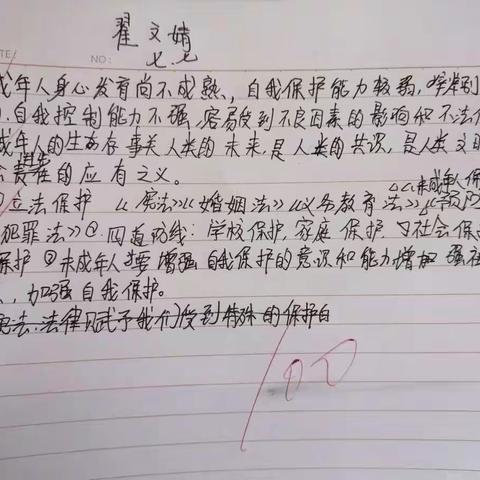 翟文婧
七.七
NO:
成年人身心发育尚不成熟、自我保护能力较弱,
自我控制能力不强,容易受到不良因素的影响和不法
成年人的生存事关人类的未来,是人类的共识,是人类文明
责任的应有之义。
立法保护 《宪法》《婚姻法》《义务教育法》《未成年人保
犯罪法》②.四道防线:学校保护,家庭保护,社会保
保护③未成年人要增强自我保护的意识和能力增加强
,加强自我保护。
宪法.法律赋予我们受到特殊的保护自
100